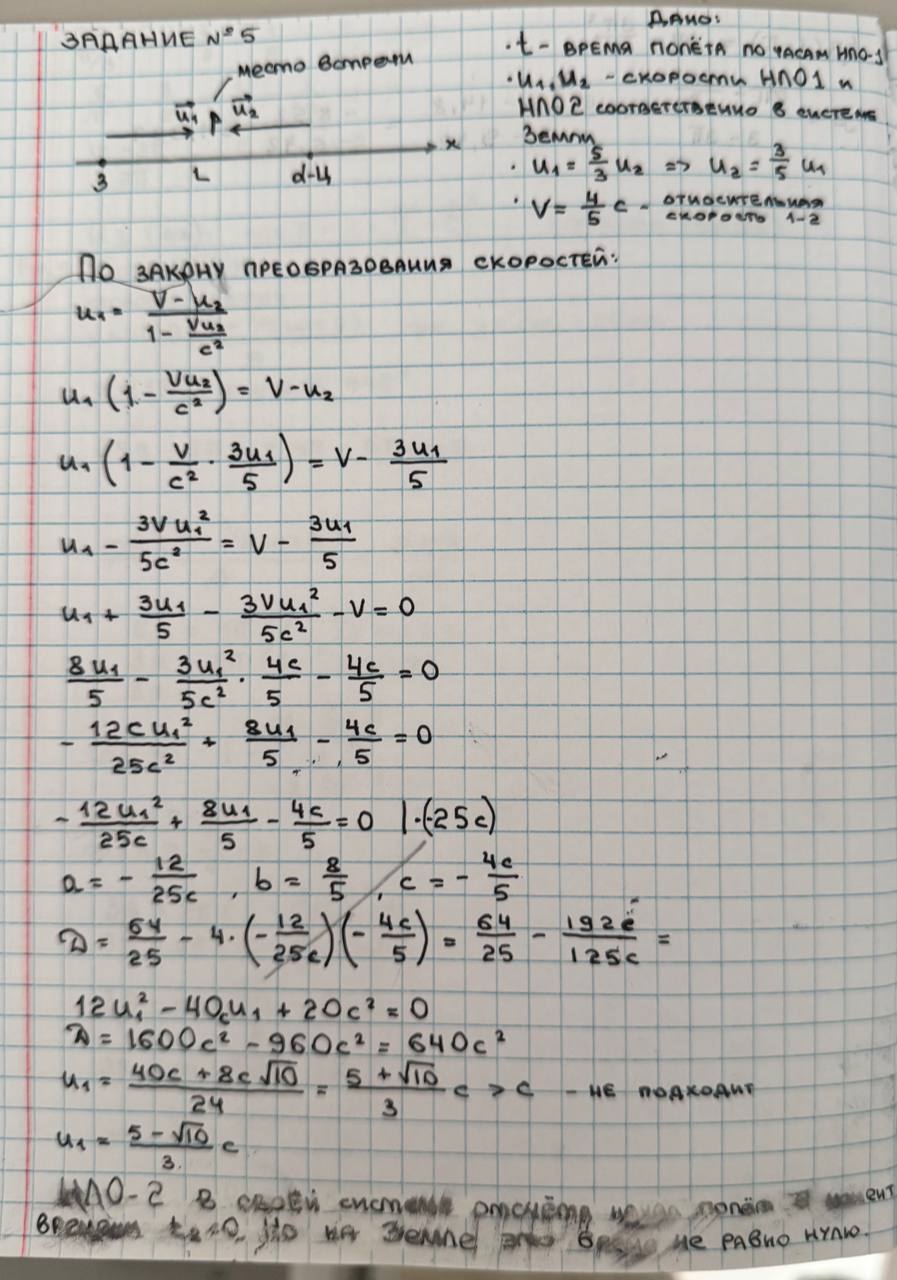 ЗАДАНИЕ №5
место встречи
u₁ u₂
x
З L α-Ц
ДАНО:
· t - ВРЕМЯ ПОЛЁТА ПО ЧАСАМ НЛО-1
· u₁, u₂ - СКОРОСТИ НЛО1 и
НЛО2 СООТВЕТСТВЕННО В СИСТЕМЕ
Земли
· u₁ = 5/3 u₂ => u₂ = 3/5 u₁
· V = 4/5 c - ОТНОСИТЕЛЬНАЯ
СКОРОСТЬ 1-2
ПО ЗАКОНУ ПРЕОБРАЗОВАНИЯ СКОРОСТЕЙ:
u₁ = (V - u₂)/(1 - Vu₂/c²)
u₁ (1 - Vu₂/c²) = V - u₂
u₁ (1 - V/c² · 3u₁/5) = V - 3u₁/5
u₁ - 3Vu₁²/5c² = V - 3u₁/5
u₁ + 3u₁/5 - 3Vu₁²/5c² - V = 0
8u₁/5 - 3u₁²/5c² · 4c/5 - 4c/5 = 0
- 12cu₁²/25c² + 8u₁/5 - 4c/5 = 0
- 12u₁²/25c + 8u₁/5 - 4c/5 = 0 |·(-25c)
a = - 12/25c , b = 8/5 , c = - 4c/5
D = 64/25 - 4·(-12/25c)(-4c/5) = 64/25 - 192c/125c =
12u₁² - 40cu₁ + 20c² = 0
D = 1600c² - 960c² = 640c²
u₁ = (40c + 8c√10)/24 = (5 + √10)/3 c > c - НЕ ПОДХОДИТ
u₁ = (5 - √10)/3 c
НЛО-2 в своей системе отсчёта полёт в момент
времени t₂=0, Но на Земле это время не равно нулю.